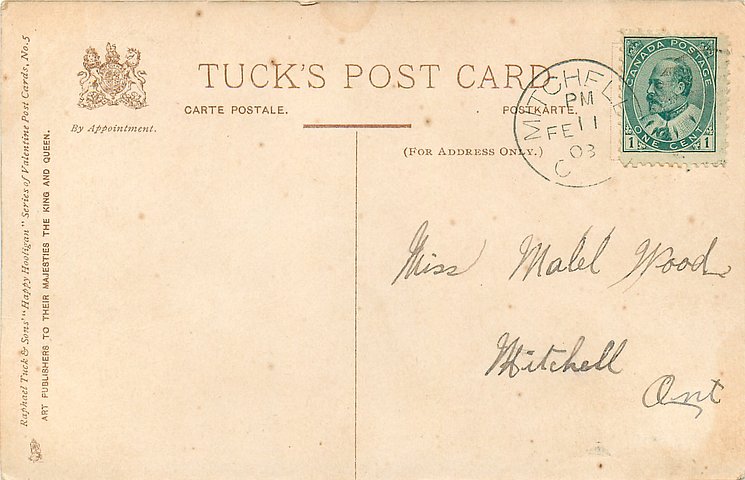 Raphael Tuck & Sons' "Happy Hooligan" Series of Valentine Post Cards, No. 5
ART PUBLISHERS TO THEIR MAJESTIES THE KING AND QUEEN.
By Appointment.
TUCK'S POST CARD
CARTE POSTALE.
POSTKARTE.
(FOR ADDRESS ONLY.)
MITCHELL
PM
FE 11
08
CANADA POSTAGE
1 ONE CENT 1
Miss Mabel Wood
Mitchell
Ont